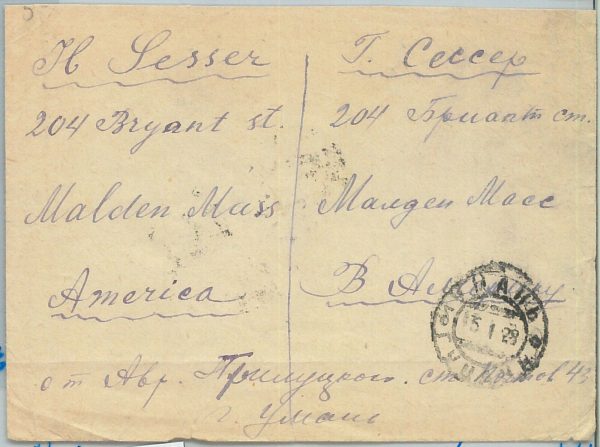 H Sesser
204 Bryant st.
Malden Mass
America
Г. Сессер
204 Бриант ст.
Малден Масс
В Америку
от Авр. Прилуцкого. 43
г. Умань
УМАНЬ
15 1 28